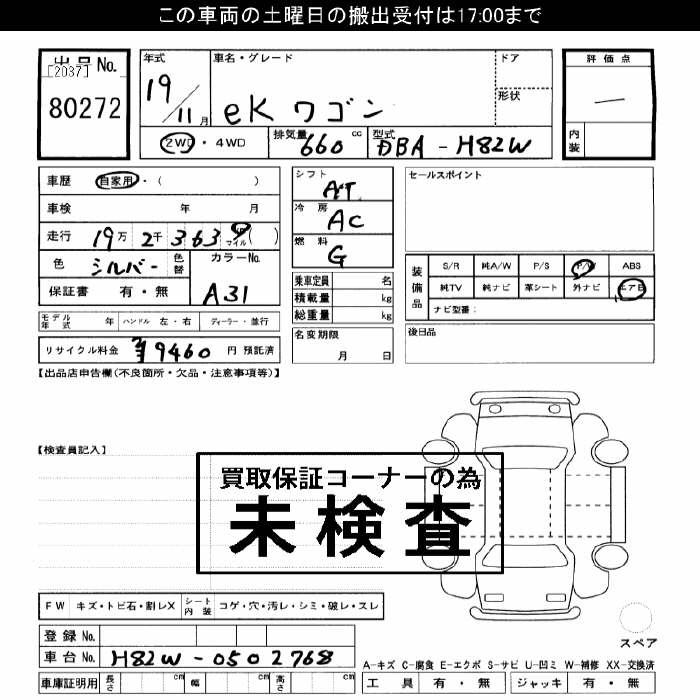 この車両の土曜日の搬出受付は17:00まで
出品No.
[2037]
80272
年式
19/11月
車名・グレード
eKワゴン
ドア
形状
評価点
—
内装
2WD・4WD
排気量 660 cc
型式 DBA-H82W
車歴 自家用・( )
車検 年 月
走行 19万2千363
マイル( )
色 シルバー 色替
カラーNo.
A31
保証書 有・無
シフト
AT
冷房
AC
燃料
G
乗車定員 名
積載量 kg
総重量 kg
セールスポイント
装備品
S/R 純A/W P/S P/W ABS
純TV 純ナビ 革シート 外ナビ エアB
ナビ型番:
モデル年式 年 ハンドル 左・右 ディーラー・並行
名変期限
月 日
後日品
リサイクル料金 ¥9460 円 預託済
【出品店申告欄(不良箇所・欠品・注意事項等)】
【検査員記入】
買取保証コーナーの為
未検査
FW キズ・トビ石・割レX シート内装 コゲ・穴・汚レ・シミ・破レ・スレ
登録No.
車台No. H82W-0502768
車庫証明用 長さ cm 幅 cm 高さ cm
スペア
A-キズ C-腐食 E-エクボ S-サビ U-凹ミ W-補修 XX-交換済
工具 有・無 ジャッキ 有・無